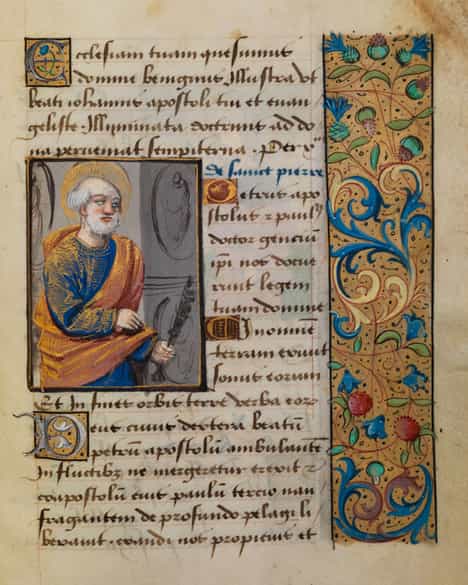 Ecclesiam tuam quesumus
domine benignus Illustra vt
beati iohannis apostoli tui et euan
geliste Illuminata doctrinis ad do
na perueniat sempiterna · Per x̄
de sainct pierre
Petrus apo
stolus z paul9
doctor genciū
ip̄i nos docue
runt legem
tuam domine
In omnē
terram exiuit
sonus eorum
Et In fines orbis terre verba eorz
Deus cuius dextera beatū
petrū apostolū ambulantē
In fluctibz ne mergeretur erexit z
coapostolū eius paulū tercio nau
fragantem de profundo pelagi li
berauit · exaudi nos propicius et